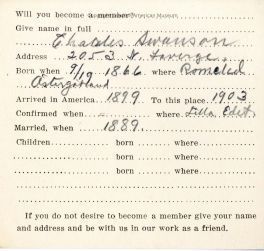 Will you become a member?
Give name in full
Charles Swanson
Address 2053 N.
Born when 9/19 1866 where
Östergötland
Arrived in America 1899 To this place 1903
Confirmed when where
Married, when 1889.
Children born where
born where
born where
If you do not desire to become a member give your name
and address and be with us in our work as a friend.